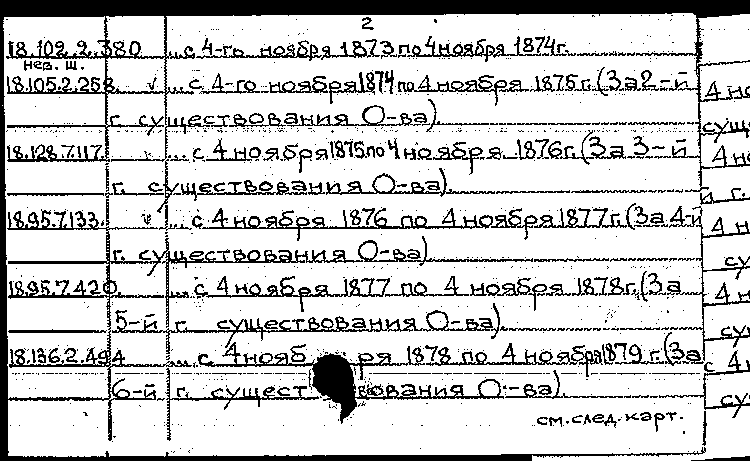 2
18.102.2.380 ...с 4-го ноября 1873 по 4 ноября 1874г.
нев. ш.
18.105.2.258. √ ...с 4-го ноября 1874 по 4 ноября 1875г. (За 2-й
г. существования О-ва).
18.128.7.117. ...с 4 ноября 1875 по 4 ноября 1876г. (За 3-й
г. существования О-ва).
18.95.7.133. √ ...с 4 ноября 1876 по 4 ноября 1877г. (За 4-й
г. существования О-ва)
18.95.7.420. ...с 4 ноября 1877 по 4 ноября 1878г. (За
5-й г. существования О-ва).
18.136.2.494 ...с 4 ноября 1878 по 4 ноября 1879г. (За
6-й г. существования О-ва).
см. след. карт.
4 но
сущ
4 но
й г.
4 н
су
4 н
су
с 4 н
су